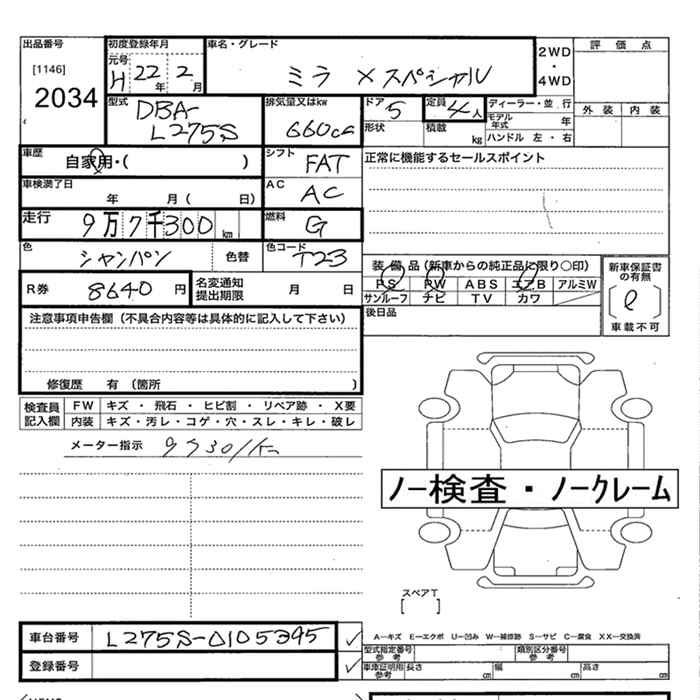 出品番号
[1146]
2034
初度登録年月
元号
H 22年 2月
車名・グレード
ミラ Xスペシャル
2WD
・
4WD
評価点
外装 内装
型式
DBA-
L275S
排気量又はkw
660cc
ドア
5
定員
4人
形状
積載
kg
ディーラー・並行
モデル年式 年
ハンドル 左・右
車歴
自家用・( )
シフト
FAT
正常に機能するセールスポイント
車検満了日
年 月( 日)
AC
AC
走行
9万7千300km
燃料
G
色
シャンパン
色替
色コード
T23
R券
8640円
名変通知
提出期限
月 日
装備品(新車からの純正品に限り○印)
PS PW ABS エアB アルミW
サンルーフ ナビ TV カワ
後日品
新車保証書
の有無
車載不可
注意事項申告欄(不具合内容等は具体的に記入して下さい)
修復歴 有(箇所 )
検査員
記入欄
FW キズ・飛石・ヒビ割・リペア跡・X要
内装 キズ・汚レ・コゲ・穴・スレ・キレ・破レ
メーター指示
ノー検査・ノークレーム
スペアT
[ ]
車台番号
L275S-0105345
登録番号
A─キズ E─エクボ U─凹み W─補修跡 S─サビ C─腐食 XX─交換済
型式指定番号
参考
類別区分番号
参考
車庫証明用
参考
長さ cm 幅 cm 高さ cm